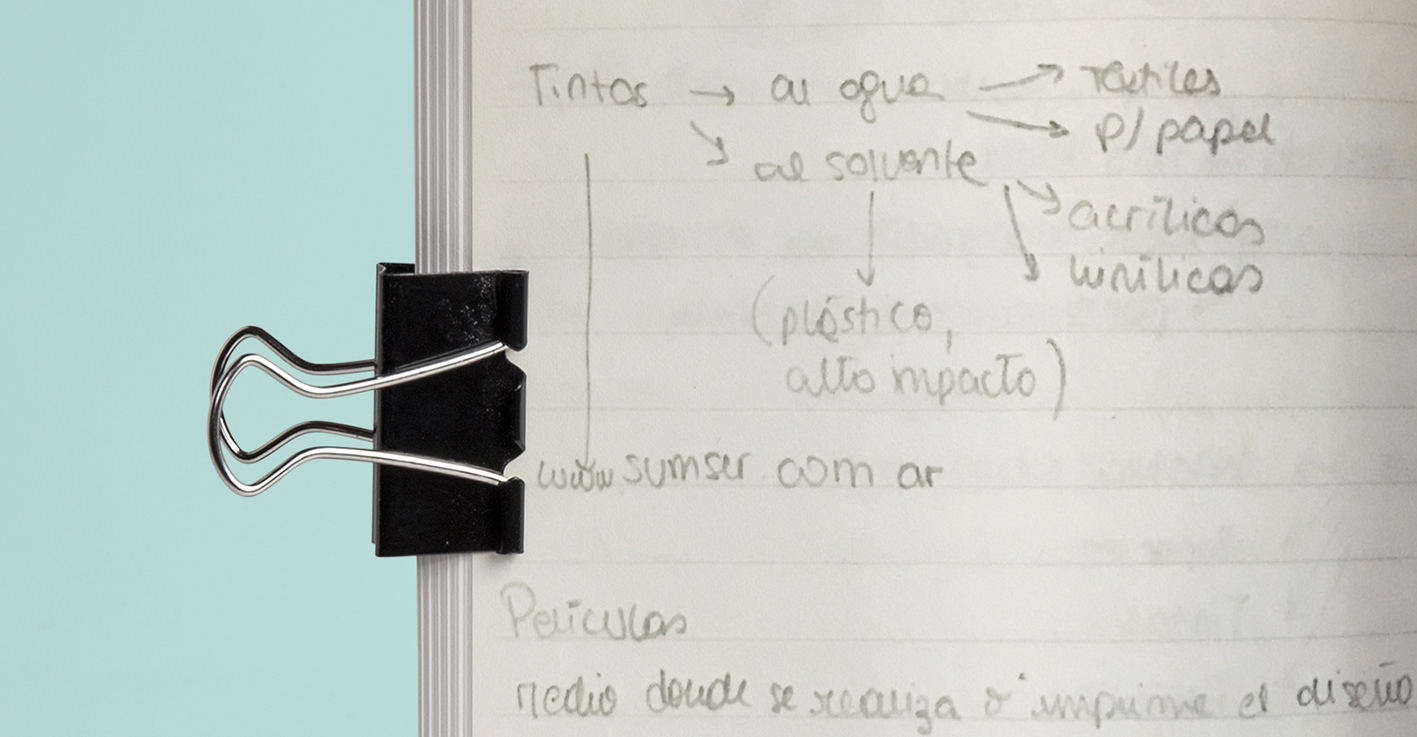 Tintas → al agua → textiles
→ p/ papel
→ al solvente
→ acrílicas
→ vinílicas
(plástico,
alto impacto)
www sumser com ar
Películas
medio donde se realiza o imprime el diseño